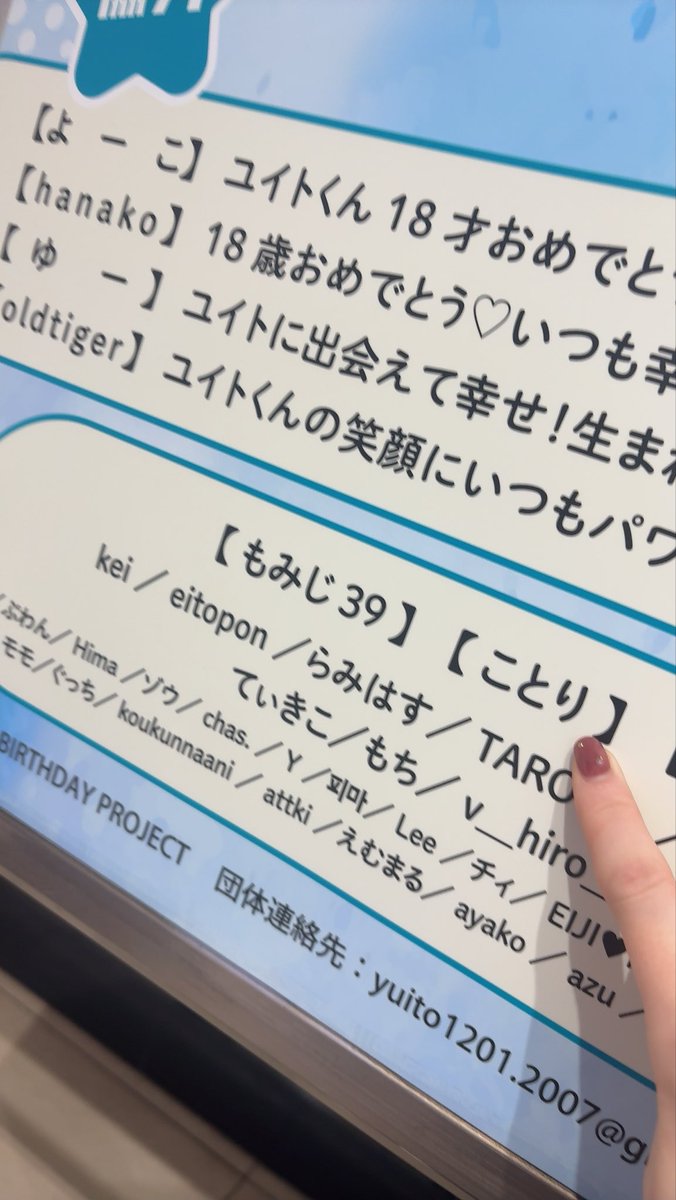 【よーこ】ユイトくん 18 才おめでと
【hanako】18 歳おめでとう♡いつも幸
【ゆー】ユイトに出会えて幸せ！生まれ
oldtiger】ユイトくんの笑顔にいつもパワ
【もみじ39】【ことり】
kei ／ eitopon ／らみはす／ TARO
ていきこ／もち／ v__hiro_
／ぷわん／ Hima ／ゾウ／ chas. ／ Y ／피마／ Lee ／チィ／ EIJI♥
モモ／ぐっち／ koukunnaani ／ attki ／えむまる／ ayako ／ azu ／
BIRTHDAY PROJECT 団体連絡先：yuito1201.2007@g